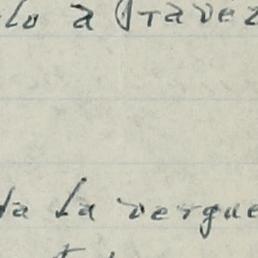 lo a travez
da la vergue